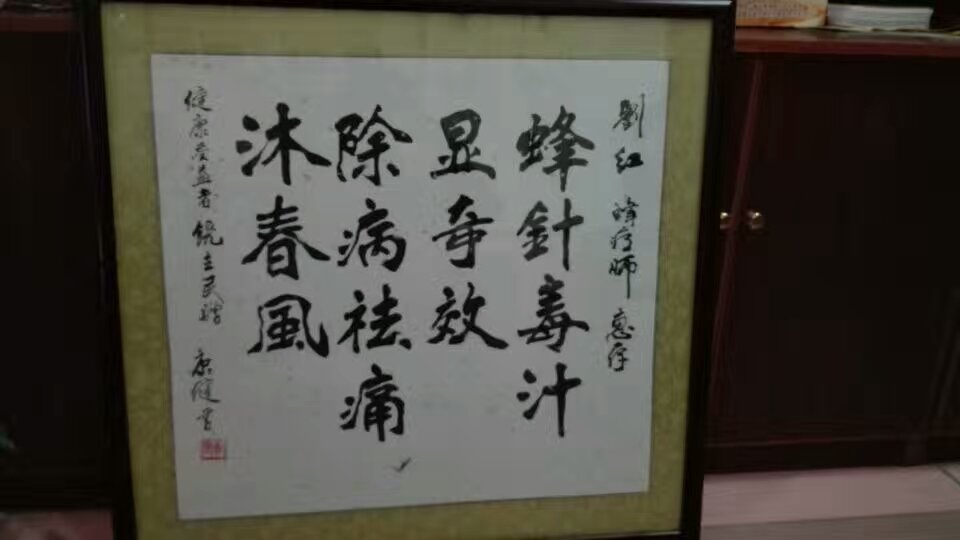 劉红 蜂疗师 惠存
蜂針毒汁
显奇效
除病祛痛
沐春風
健康受益者 饶立民赠 康健书